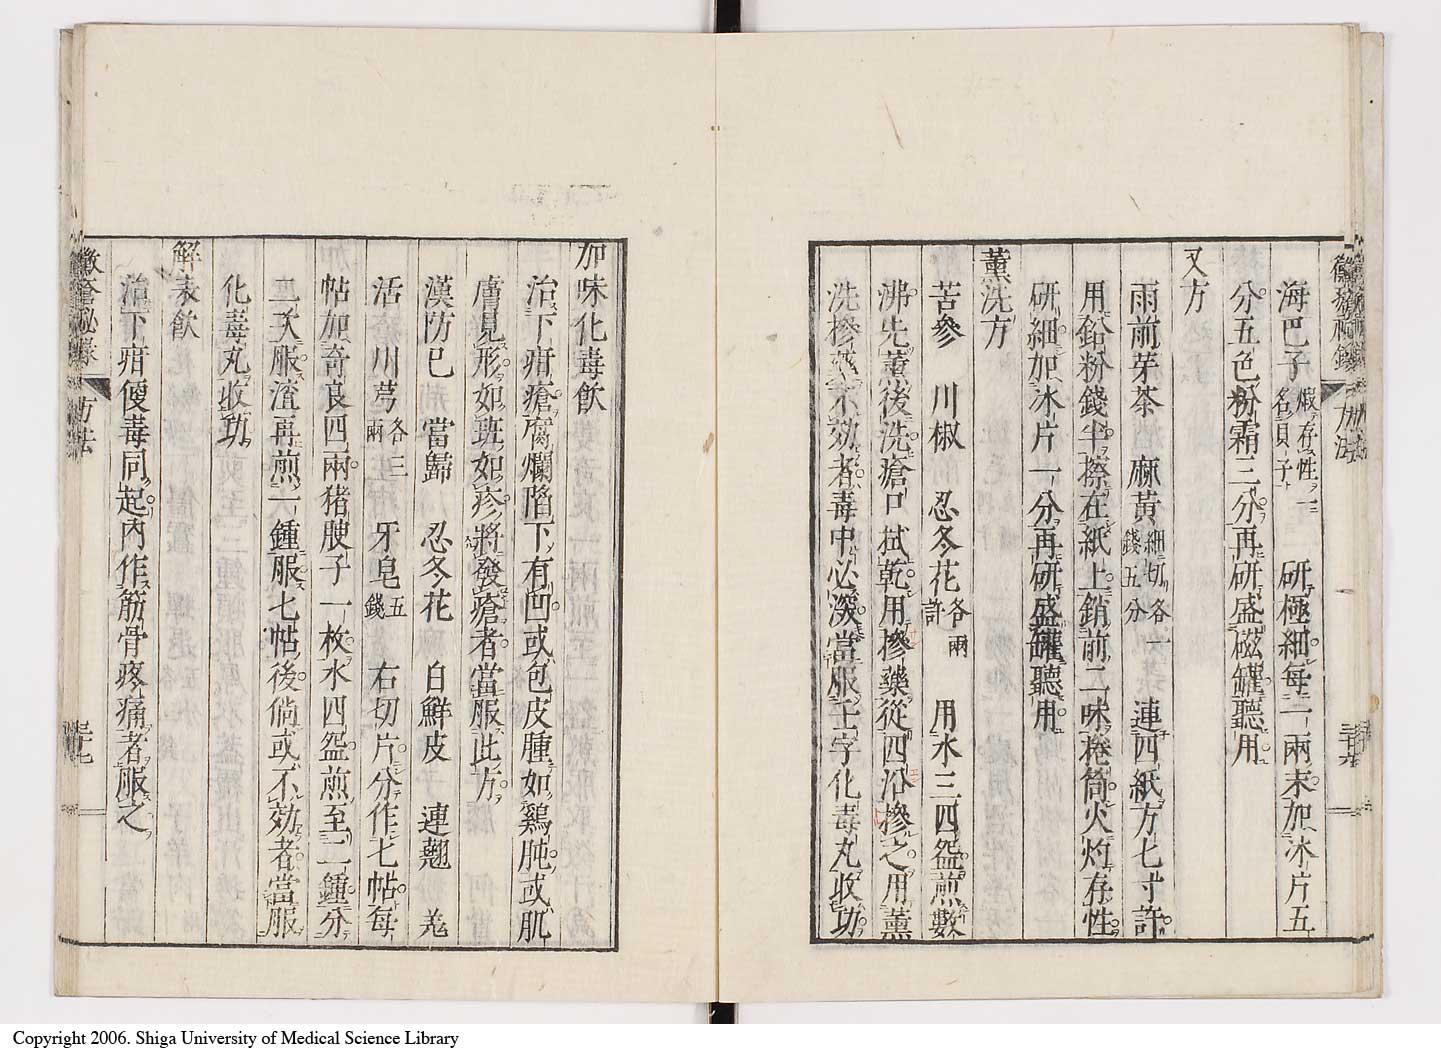 海巴子 煆存性一名貝子 研極細每二兩末加冰片五
分五色粉霜三分再研盛磁罐聽用
又方
雨前芽茶 麻黃 細切各一錢五分 連四紙方七寸許
用鉛粉錢半擦在紙上銷前二味捲筒火灼存性
研細加冰片一分再研盛罐聽用
薰洗方
苦參 川椒 忍冬花 各兩許 用水三四盌煎數
沸先薰後洗瘡口拭乾用摻藥從四沿摻之用薰
洗摻藥不効者毒中必深當服壬字化毒丸收功
黴瘡秘錄 方法 三十六
加味化毒飲
治下疳瘡腐爛陷下有凹或包皮腫如鷄肫或肌
膚見形如班如疹將發瘡者當服此方
漢防巳 當歸 忍冬花 白鮮皮 連翹 羗
活 川芎 各三兩 牙皂 五錢 右切片分作七帖每
帖加奇良四兩猪胰子一枚水四盌煎至二鍾分
二次服渣再煎一鍾服七帖後倘或不効者當服
化毒丸收功
解表飲
治下疳便毒同起內作筋骨疼痛者服之
黴瘡秘錄 方法 三十七
Copyright 2006. Shiga University of Medical Science Library